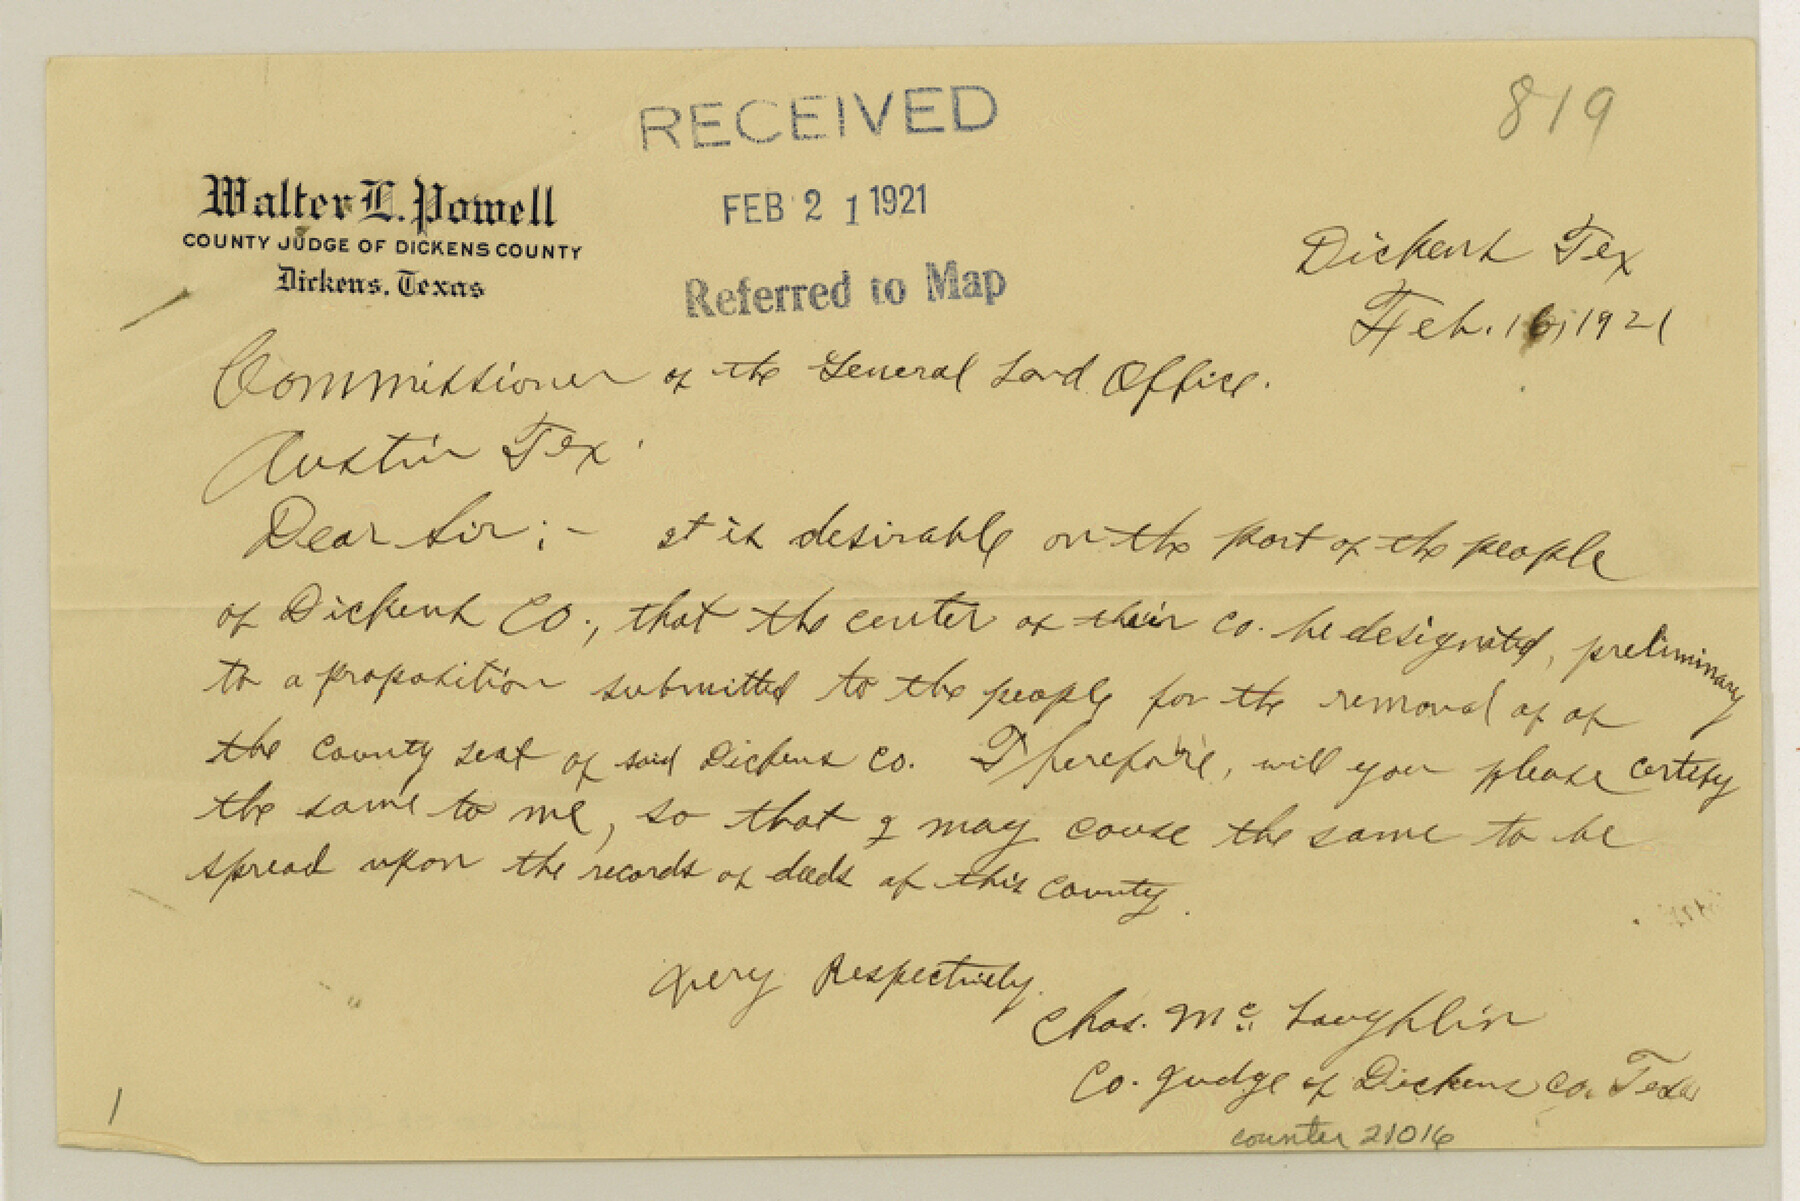 RECEIVED
819
Walter L. Powell
COUNTY JUDGE OF DICKENS COUNTY
Dickens, Texas
FEB 21 1921
Referred to Map
Dickens Tex
Feb. 16, 1921
Commissioner of the General Land Office.
Austin Tex.
Dear Sir; - It is desirable on the part of the people
of Dickens Co., that the center of their co. be designated, preliminary
to a proposition submitted to the people for the removal of of
the County seat of said Dickens Co. Therefore, will you please certify
the same to me, so that I may cause the same to be
spread upon the records of deeds of this County.
Very Respectively.
Chas. Mc Laughlin
Co. Judge of Dickens Co. Texas
1
counter 21016